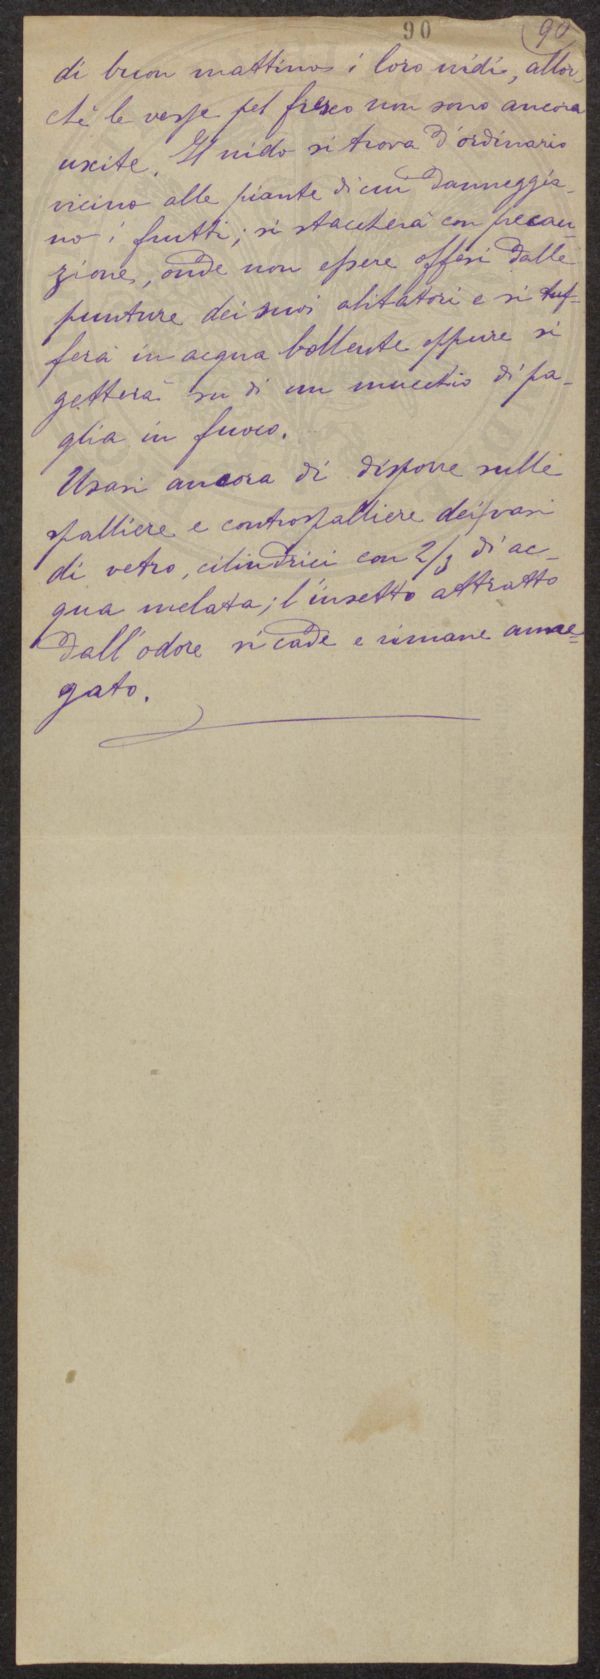 90
90
di buon mattino i loro nidi, allor-
chè le vespe pel fresco non sono ancora
uscite. Il nido si trova d'ordinario
vicino alle piante di cui danneggia-
no i frutti; si staccherà con precau-
zione, onde non essere offesi dalle
punture dei suoi abitatori e si tuf-
ferà in acqua bollente oppure si
getterà su di un mucchio di pa-
glia in fuoco.
Usasi ancora di disporre sulle
spalliere e controspalliere dei vasi
di vetro, cilindrici con 2/3 di ac-
qua melata; l'insetto attratto
dall'odore vi cade e rimane anne-
gato.